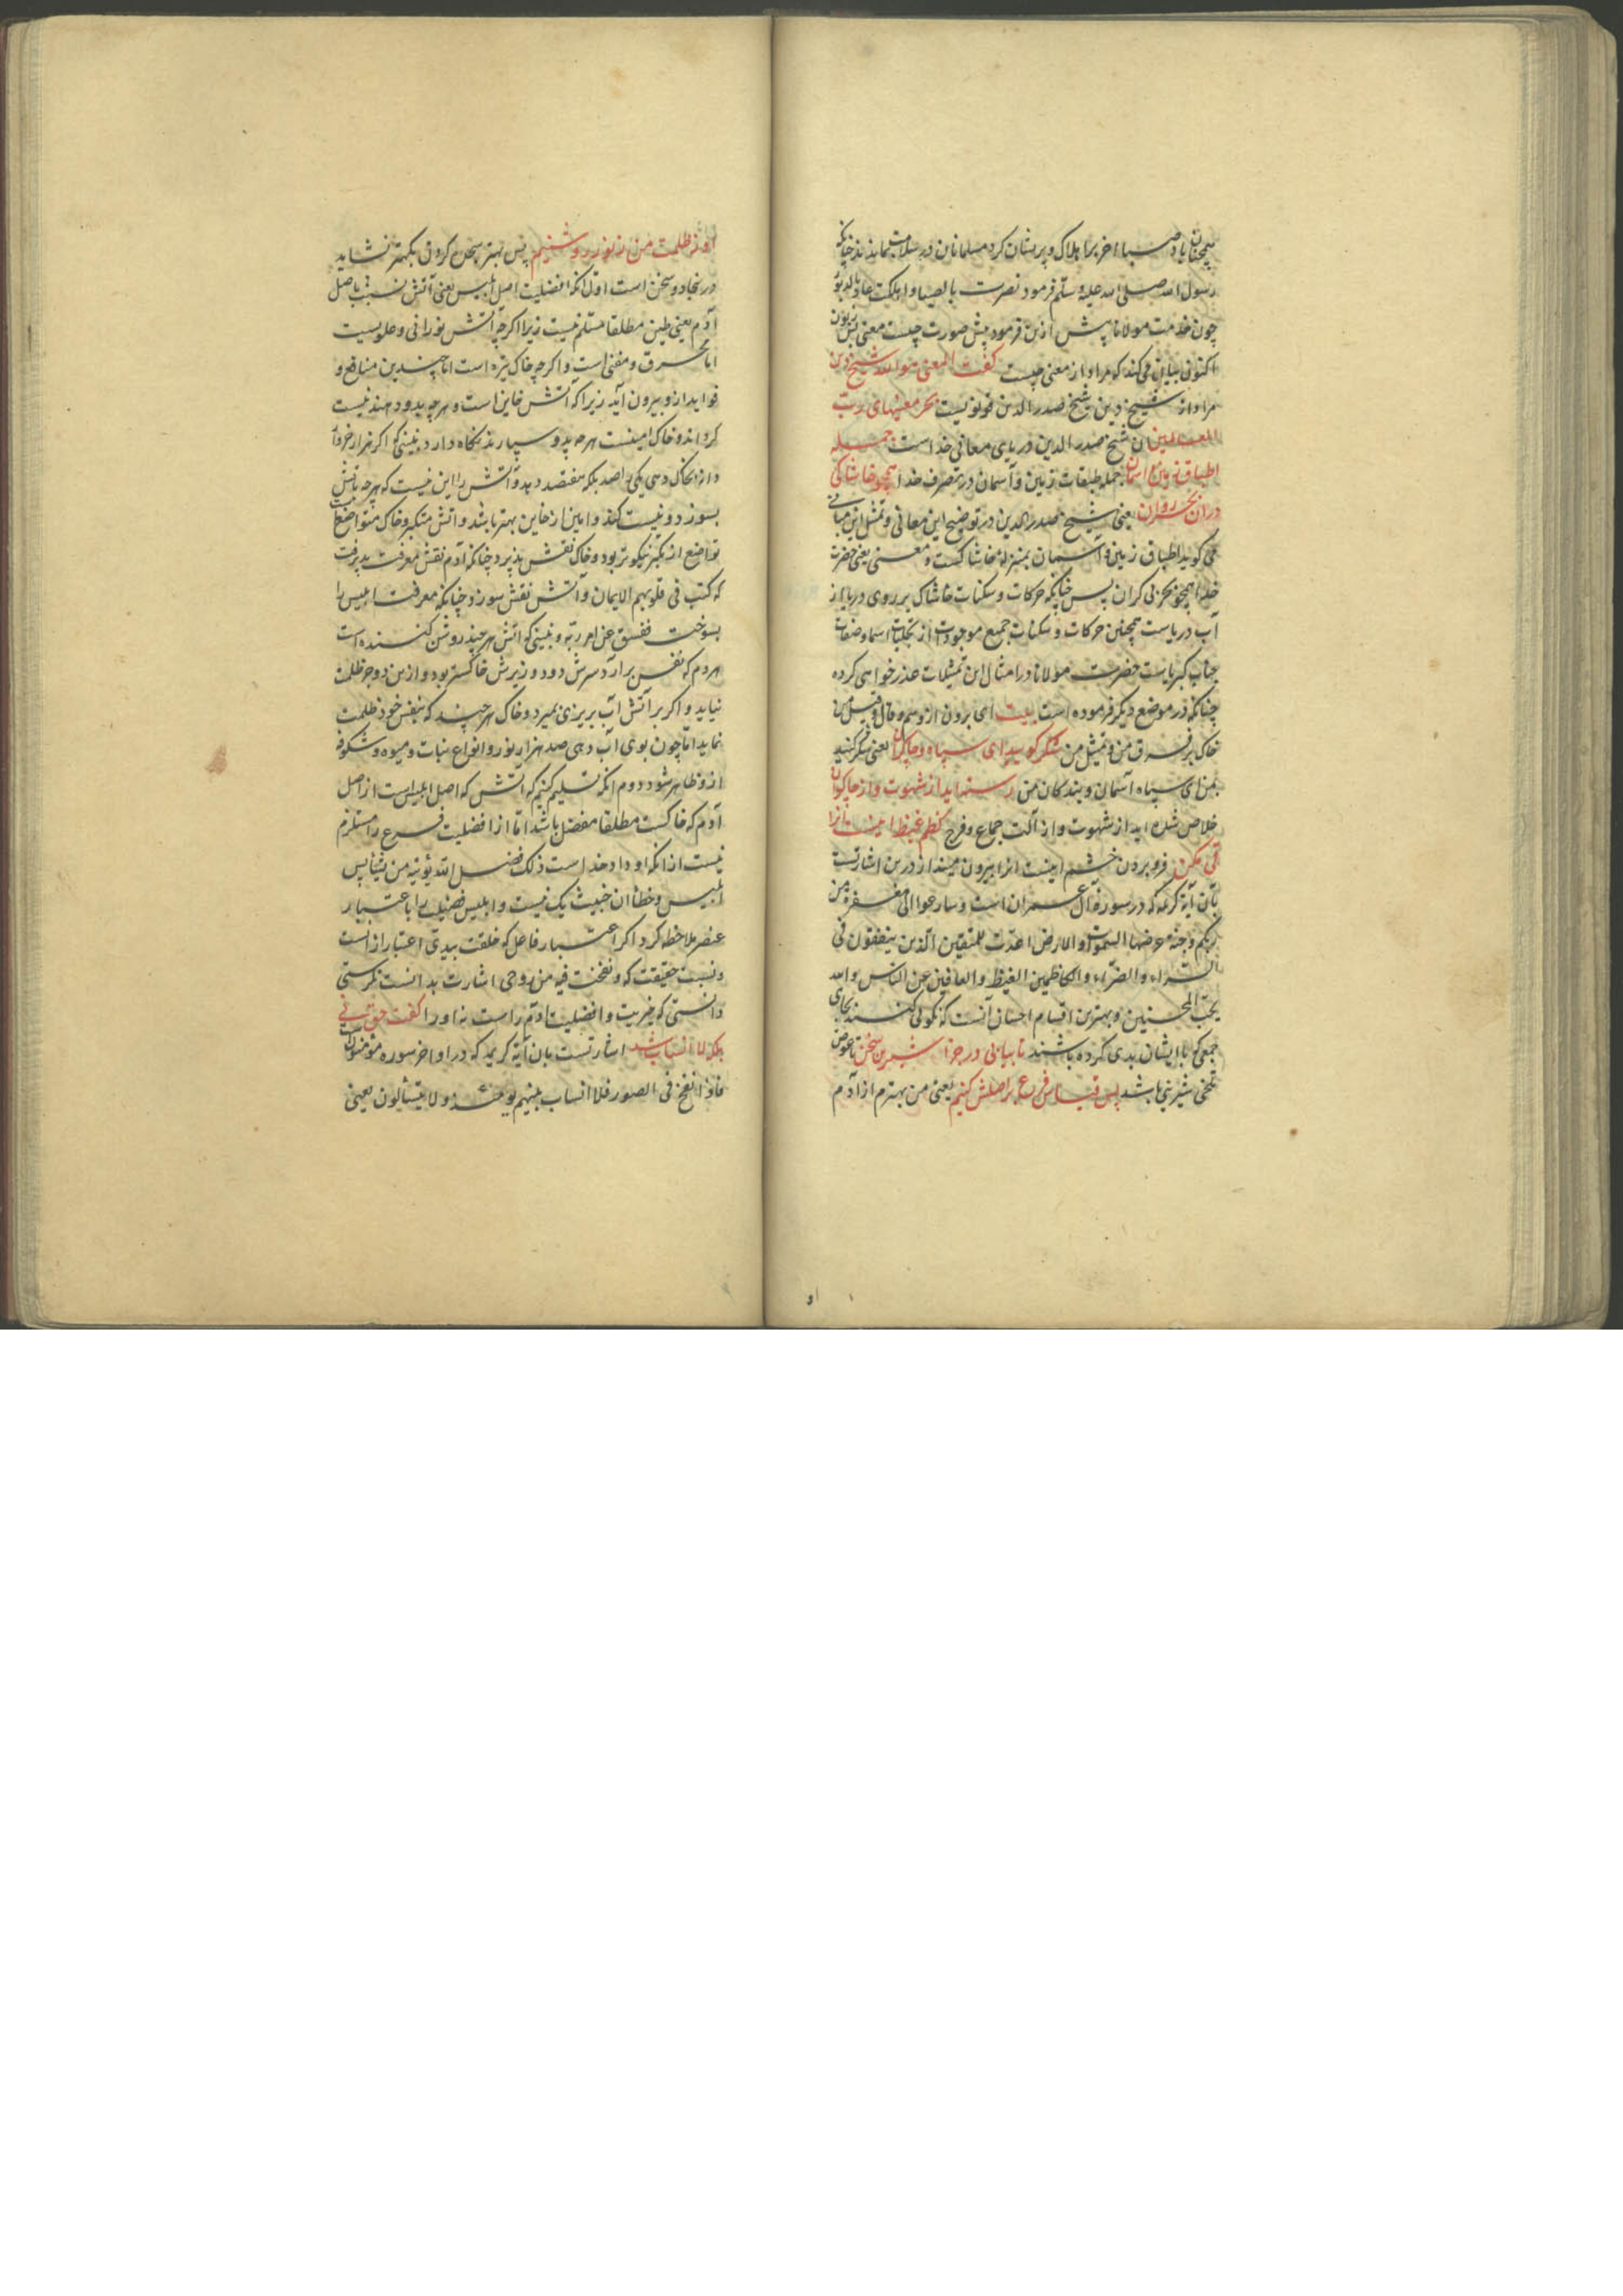 همچنان باد صبا احزاب را هلاک و پریشان کرد مسلمانان در سلامت بماندند چنانکه
رسول الله صلی الله علیه و سلم فرمود نصرت بالصبا و اهلکت عاد بالدبور
چون خدمت مولانا پیش ازین فرمود پیش صورت چیست معنی بس زبون
اکنون بیان می کند که مراد از معنی چیست کفت المعنی هو الله شیخ دین
مراد از شیخ دین شیخ صدر الدین قونویست بحر معنیهای رب
العالمین ان شیخ صدر الدین دریای معانی خداست جمله
اطباق زمین و آسمان جمله طبقات زمین و آسمان در تصرف خدا همچو خاشاکی
در ان بحر روان یعنی شیخ صدر الدین در توضیح این معانی و تمثل این مبانی
می کوید اطباق زمین و آسمان بمنزله خاشاکست و معنی یعنی حضرت
خدا همچو بحر بی کران پس چنانکه حرکات و سکنات خاشاک بر روی دریا از
آب دریاست همچنین حرکات و سکنات جمیع موجودات از تجلیات اسما و صفات
جناب کبریاست حضرت مولانا در امثال این تمثیلات عذر خواهی کرده
چنانکه در موضع دیکر فرموده است بیت ای برون از وهم و قال و قیل من
خاک بر فرق من و تمثیل من شکر کویید ای سپاه و چاکران یعنی شکر کنید
بمن ای سپاه آسمان و بندکان من رسته اید از شهوت و از چاک ران
خلاص شده اید از شهوت و از آلت جماع و فرج کظم غیظ اینست انرا
قی مکن فرو بردن خشم اینست انرا بیرون مینداز درین اشارتست
بآن آیة کریمه که در سوره آل عمران است و سارعوا الی مغفرة من
ربکم و جنة عرضها السموات و الارض اعدت للمتقین الذین ینفقون فی
السراء و الضراء و الکاظمین الغیظ و العافین عن الناس و الله
یحب المحسنین و بهترین اقسام احسان آنست که نکویی کنند بجای
جمعی که با ایشان بدی کرده باشند تا بیابی در جزا شیرین سخن تا عوض
تلخی شیرینی باشد پس قیاس فرع بر اصلش کنیم یعنی من بهترم از آدم
او ز ظلمت من ز نور روشنیم پس بهتر سجود کردن بکهتر نشاید
در نجا دو سخن است اول انکه افضلیت اصل ابلیس یعنی آتش نسبت باصل
آدم یعنی طین مطلقا مسلم نیست زیرا اکرچه آتش نورانی و علویست
اما محرق و مفنی است و اکرچه خاک تیره است اما چندین منافع و
فواید ازو بیرون آید زیرا که آتش خاین است و هرچه بدو دهند نیست
کرداند و خاک امینست هرچه بدو سپارند نکاه دارد نبینی که اکر هزار خروار
دانه بخاک دهی یکی را صد بلکه هفتصد دهد و آتش را این نیست که هرچه یابد
بسوزد و نیست کند و امین از خاین بهتر باشد و آتش متکبر و خاک متواضع است
تواضع از تکبر نیکوتر بود و خاک نقش پذیرد چنانکه آدم نقش معرفت پذیرفت
که کتب فی قلوبهم الایمان و آتش نقش سوزد چنانکه معرفت ابلیس را
بسوخت ففسق عن امر ربه و نبینی که اتش هرچند روشن کننده است
هر دم که نفس بر آرد سرش دود و زیرش خاکستر بود و ازین دو جز ظلمت
نیاید و اکر بر آتش آب بریزی بمیرد و خاک هرچند که بنفس خود ظلمت
نماید اما چون بوی آب دهی صد هزار نور و انواع نبات و میوه و شکوفه
ازو ظاهر شود دوم انکه تسلیم کنیم که آتش که اصل ابلیس است از اصل
آدم که خاکست مطلقا مفضل باشد اما از افضلیت فرع را مستلزم
نیست از انکه او داد خداست ذلک فضل الله یؤتیه من یشاء پس
تلبیس و خطا ان خبیث یک نیست و ابلیس فضیلت را باعتبار
عنصر ملاحظه کرد اکر اعتبار فاعل که خلقت بیدی اعتبار از است
و نسبت حقیقت که و نفخت فیه من روحی اشارت بدانست نکرستی
دانستی که خیریت و افضلیت آدم راست نه او را کفت حق نی
بلکه لا انساب شد اشارتست بان آیة کریمه که در اواخر سوره مؤمنون است
فاذا نفخ فی الصور فلا انساب بینهم یومئذ و لا یتسائلون یعنی
او